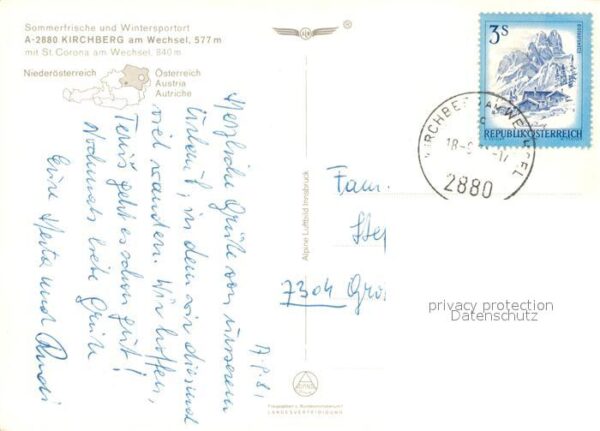 Sommerfrische und Wintersportort
A-2880 KIRCHBERG am Wechsel, 577 m
mit St. Corona am Wechsel, 840 m
Niederösterreich
Österreich
Austria
Autriche
Herzliche Grüße von unserem
Urlaub, in dem wir diesmal
viel wandern. Wir hoffen,
geht es schon gut!
Nochmals liebe Grüße
Eure Herta und Rudi
Alpine Luftbild Innsbruck
LANDESVERTEIDIGUNG
3s
REPUBLIK ÖSTERREICH
KIRCHBERG AM WECHSEL
2880
Fam.
7304 Gro
privacy protection
Datenschutz